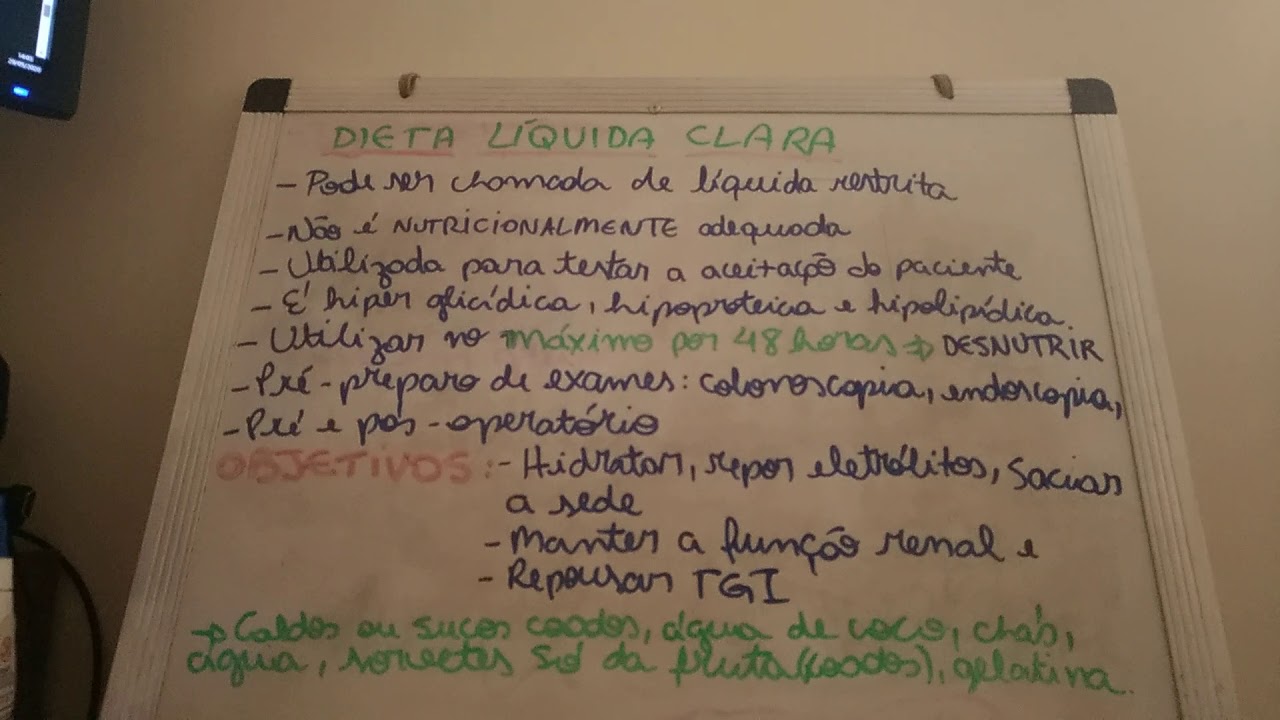 DIETA LÍQUIDA CLARA
- Pode ser chamada de líquida restrita
- Não é NUTRICIONALMENTE adequada
- Utilizada para testar a aceitação do paciente
- É hiper glicídica, hipoproteica e hipolipídica.
- Utilizar no máximo por 48 horas → DESNUTRIR
- Pré-preparo de exames: colonoscopia, endoscopia,
- Pré e pós-operatório
OBJETIVOS: - Hidratar, repor eletrólitos, Saciar
a sede
- Manter a função renal e
- Repousar TGI
→ Caldos ou sucos coados, água de coco, chás,
água, sorvetes só da fruta (coados), gelatina.